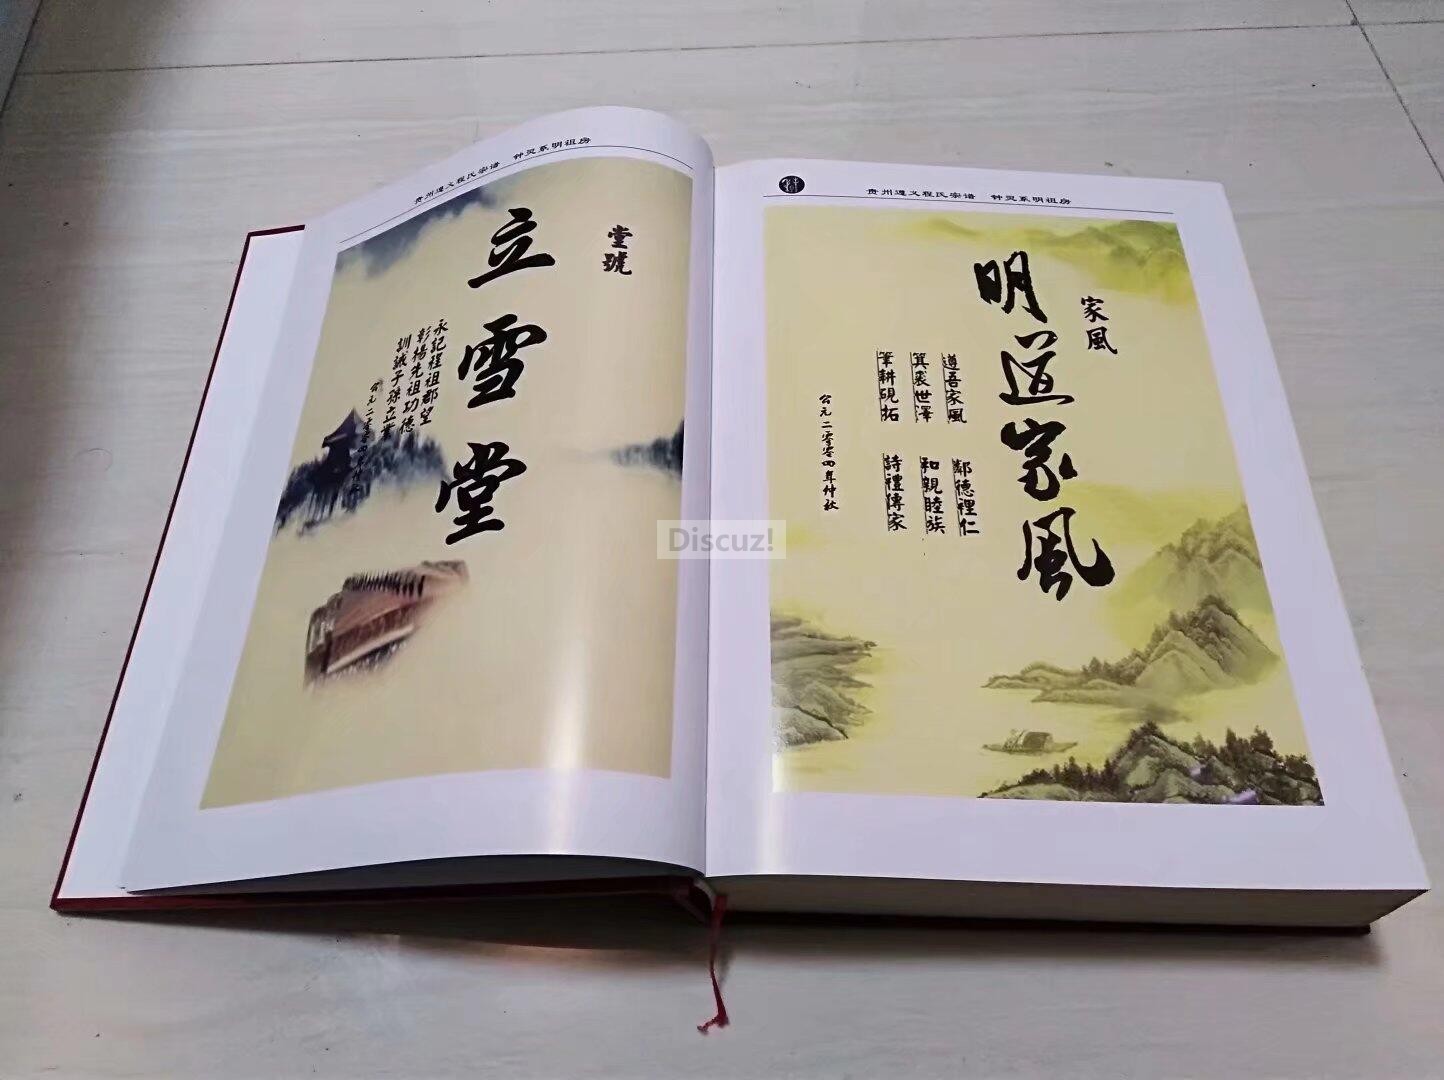 贵州遵义程氏宗谱 钟灵系明祖房
堂號
立雪堂
永記程祖郡望
彰揚先祖功德
訓誡子孫立業
公元二零零四年仲秋
贵州遵义程氏宗谱 钟灵系明祖房
家風
明道家風
遵吾家風 鄰德裡仁
箕裘世澤 和親睦族
筆耕硯拓 詩禮傳家
公元二零零四年仲秋
Discuz!